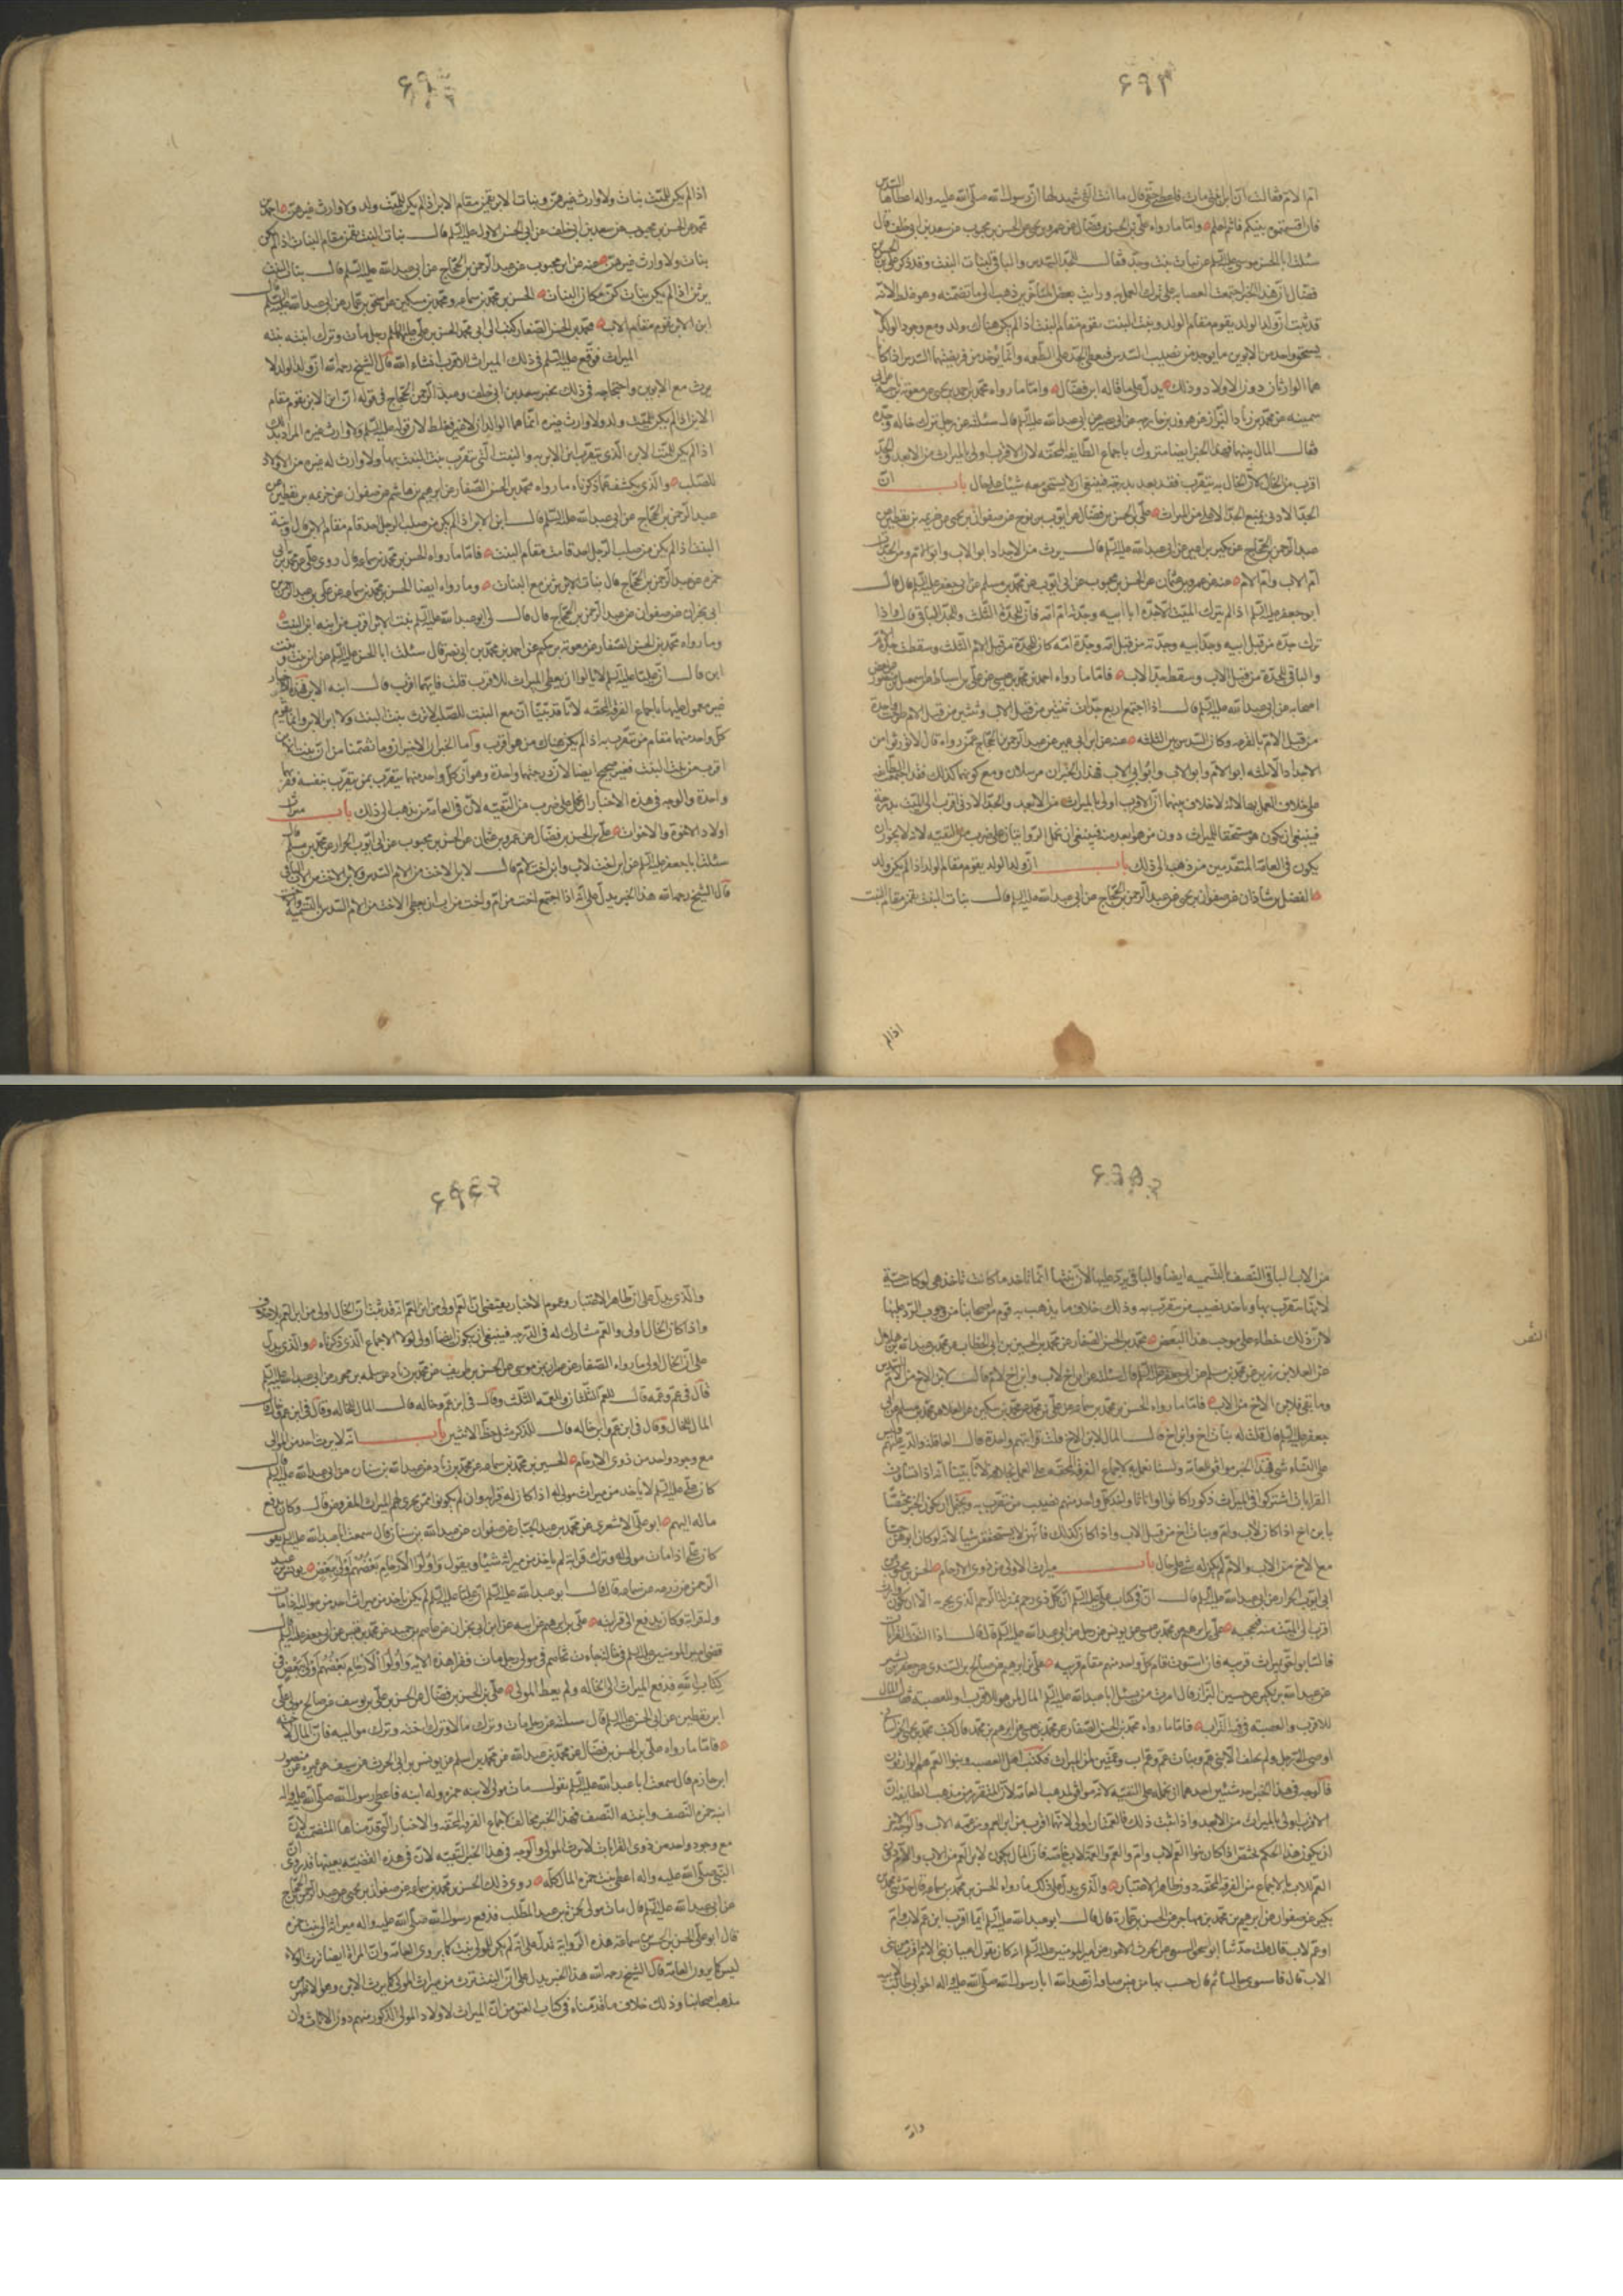 ۶۹۳
ام الام فقالت ان ابن ابنی مات فاعطنی حقی فقال ما انت التی شهد لها ان رسول الله صلی الله علیه واله اعطاها السدس
فان اقتسمتموه بینکم فانتم اعلم واما ما رواه علی بن الحسن بن فضال عن عمرو بن عن الحسن بن محبوب عن سعد بن ابی خلف قال
سئلت ابا الحسن موسی علیه السلم عن بنات بنت وجد فقال للجد السدس والباقی لبنات البنت وقد ذکر علی بن الحسن
فضال ان هذا الخبر اجمعت العصابه علی ترک العمل به ورایت بعض المتاخرین ذهب الی ما تضمنه وهو غلط لانه
قد ثبت ان ولد الولد یقوم مقام الولد وبنت البنت تقوم مقام البنت اذا لم یکن هناک ولد ومع وجود الولد لا
یستحق واحد من الابوین ما یوخد من نصیب السدس فیعطی الجد علی الطعمه وانما یوخد من فریضتهما السدس اذا کانا
هما الوارثان دون الاولاد وذلک یدل علی ما قاله ابن فضال واما ما رواه محمد بن احمد بن یحیی عن
عن محمد بن زیاد البزاز عن هرون بن خارجه عن ابی بصیر عن ابی عبدالله علیه السلم قال سئلته عن رجل ترک خاله وجده
فقال المال بینهما فهذا الخبر ایضا متروک باجماع الطایفه المحقه لان الاقرب اولی بالمیراث من الابعد والجد
اقرب من الخال لان الخال به یتقرب فقد بعد بدرجة فینبغی ان لا یستحق معه شیئا علی حال باب ان
الجد الادنی یمنع الجد الاعلی من المیراث علی بن الحسن بن فضال عن ایوب بن نوح عن صفوان بن یحیی عن خزیمه بن یقطین عن
عبدالرحمن بن الحجاج عن بکیر بن اعین عن ابی عبدالله علیه السلم قال یرث من الاجداد ابو الاب وابو الام ومن الجدات
ام الاب وام الام عنه عن عمرو بن عثمان عن الحسن بن محبوب عن ابی ایوب عن محمد بن مسلم عن ابی جعفر علیه السلم قال قال
ابو جعفر علیه السلم اذا لم یترک المیت الا جده ابا ابیه وجدته ام امه فان للجدة الثلث وللجد الباقی قال واذا
ترک جده من قبل ابیه وجد ابیه وجدته من قبل امه وجدة امه کان للجدة من قبل الام الثلث وسقطت جدة الام
والباقی للجد من قبل الاب وسقط جد الاب فاما ما رواه احمد بن محمد بن عیسی عن علی بن اسباط عن اسمعیل بن منصور عن بعض
اصحابه عن ابی عبدالله علیه السلم قال اذا اجتمع اربع جدات ثنتین من قبل الاب وثنتین من قبل الام طرحت واحدة
من قبل الام بالقرعه وکان السدس بین الثلثه عنه عن ابن ابی عمیر عن عبدالرحمن بن الحجاج عمن رواه قال لا تورثوا من
الاجداد الا ثلثه ابو الام وابو الاب وابو ابی الاب فهذان الخبران مرسلان ومع کونهما کذلک فقد اجمعت الطایفه
علی خلاف العمل بهما لانه لا خلاف بینها ان الاقرب اولی بالمیراث من الابعد والجد الادنی اقرب الی المیت بدرجة
فینبغی ان یکون هو مستحقا للمیراث دون من هو ابعد منه فینبغی ان نحمل الروایتان علی ضرب من التقیه لانه لا یجوز ان
یکون فی العامه المتقدمین من ذهب الی ذلک باب ان ولد الولد یقوم مقام الولد اذا لم یکن ولد
الفضل بن شاذان عن صفوان بن یحیی عن عبدالرحمن بن الحجاج عن ابی عبدالله علیه السلم قال بنات البنت یقمن مقام البنت
اذا لم
اذا لم یکن للمیت بنات ولا وارث غیرهن وبنات الابن یقمن مقام الابن اذا لم یکن للمیت ولد ولا وارث غیرهن احمد بن
محمد عن الحسن بن محبوب عن سعد بن ابی خلف عن ابی الحسن الاول علیه السلم قال بنات البنت یقمن مقام البنات اذا لم یکن
بنات ولا وارث غیرهن عنه عن ابن محبوب عن عبدالرحمن بن الحجاج عن ابی عبدالله علیه السلم قال بنات البنت
یرثن اذا لم یکن بنات کن مکان البنات الحسن بن محمد بن سماعه ومحمد بن سکین عن اسحق بن عمار عن ابی عبدالله علیه السلم قال
ابن الابن یقوم مقام الاب محمد بن الحسن الصفار کتب الی ابی محمد الحسن بن علی علیهما السلم رجل مات وترک ابنة بنته
المیراث فوقع علیه السلم فی ذلک المیراث للاقرب انشاء الله قال الشیخ رحمه الله ان ولد الولد لا
یرث مع الابوین واحتجاجه فی ذلک بخبر سعد بن ابی خلف وعبدالرحمن بن الحجاج فی قوله ان ابن الابن یقوم مقام
الابن اذا لم یکن للمیت ولد ولا وارث غیره انما هما الوالدان لا غیر فغلط لان قوله علیه السلم ولا وارث غیره المراد بذلک
اذا لم یکن للمیت الابن الذی یتقرب ابن الابن به والبنت التی یتقرب بنت البنت بها ولا وارث له غیره من الاولاد
للصلب والذی یکشف عما ذکرناه ما رواه محمد بن الحسن الصفار عن ابرهیم بن هاشم عن صفوان عن خزیمه بن یقطین عن
عبدالرحمن بن الحجاج عن ابی عبدالله علیه السلم قال ابن الابن اذا لم یکن من صلب الرجل احد قام مقام الابن قال وابنة
البنت اذا لم یکن من صلب الرجل احد قامت مقام البنت فاما ما رواه الحسن بن محمد بن سماعه قال روی علی عن محمد بن ابی
حمزه عن عبدالرحمن بن الحجاج قال بنات الابن یرثن مع البنات وما رواه ایضا الحسن بن محمد بن سماعه عن علی بن عبدالرحمن
ابی نجران عن صفوان عن عبدالرحمن بن الحجاج قال قال لی ابو عبدالله علیه السلم بنت الابن اقرب من ابنة ابن البنت
وما رواه محمد بن الحسن الصفار عن معویه بن حکیم عن احمد بن محمد بن ابی نصر قال سئلت ابا الحسن علیه السلم عن ابن بنت وبنت
ابن قال ان علیا علیه السلم لا یالوا ان یعطی المیراث للاقرب قلت فایهما اقرب قال ابنة الابن فهذه الاخبار
غیر معمول علیها باجماع الفرقه المحقه لانا قد بینا ان مع البنت للصلب لا ترث بنت البنت ولا ابن الابن وانما یقوم
کل واحد منهما مقام من یتقرب به اذا لم یکن هناک من هو اقرب واما الخبران الاخیران وما تضمنا من ان بنت الابن
اقرب من بنت البنت فغیر صحیح ایضا لان درجتهما واحدة وهو ان کل واحد منهما یتقرب بمن یتقرب بنفسه
واحدة والوجه فی هذه الاخبار ان نحمل علی ضرب من التقیه لان فی العامه من یذهب الی ذلک باب میراث
اولاد الاخوة والاخوات علی بن الحسن بن فضال عن عمرو بن عثمان عن الحسن بن محبوب عن ابی ایوب الخراز عن محمد بن مسلم قال
سئلت ابا جعفر علیه السلم عن ابن اخت لاب وابن اخت لام قال لابن الاخت من الام السدس ولابن الاخت من الاب الباقی
قال الشیخ رحمه الله هذا الخبر یدل علی انه اذا اجتمع اخت من ام واخت من اب ان یعطی الاخت من الام السدس بالتسمیه
من الاب الباقی النصف بالتسمیه ایضا والباقی یرد علیها لان بنتها انما تاخد ما کانت تاخد هی لو کانت حیة
لانها یتقرب بها ویاخد نصیب من یتقرب به وذلک خلاف ما یذهب به قوم من اصحابنا من وجوب الرد علیهما
لان ذلک خطاء علی موجب هذا النص محمد بن الحسن الصفار عن محمد بن الحسین بن ابی الخطاب عن محمد بن عبدالله بن هلال
عن العلا بن رزین عن محمد بن مسلم عن ابی جعفر علیه السلم قال سئلته عن ابن اخ لاب وابن اخ لام قال لابن الاخ من الام السدس
وما بقی فلابن الاخ من الاب فاما ما رواه الحسن بن محمد بن سماعه عن علی بن محمد بن سکین عن العلا عن محمد بن مسلم عن ابی
جعفر علیه السلم قال قلت له بنات اخ وابن اخ قال المال لابن الاخ قلت قرابتهم واحدة قال العاقلة والدیة علیهم ولیس
علی النساء شیء فهذا الخبر موافق للعامه ولسنا نعمل به لاجماع الفرقه المحقه علی العمل بخلافه لانا بینا انه اذا تساوت
القرابات اشترکوا فی المیراث ذکورا کانوا او اناثا واخذ کل واحد منهم نصیب من یتقرب به ویحتمل ان یکون الخبر مختصا
بابن اخ اذا کان لاب وام وبنات اخ من قبل الاب واذا کان کذلک فانهن لا یستحققن شیا لانه لو کان ابوهن حیا
مع الاخ من الاب والام لم یکن له شیء علی حال باب میراث الاولی من ذوی الارحام الحسن بن محبوب عن
ابی ایوب الخراز عن ابی عبدالله علیه السلم قال ان فی کتاب علی علیه السلم ان کل ذی رحم بمنزلة الرحم الذی یجر به الا ان یکون وارث
اقرب الی المیت منه فیحجبه علی بن ابرهیم عن محمد بن عیسی عن یونس عن رجل عن ابی عبدالله علیه السلم قال اذا التفت القرابات
فالسابق احق بمیراث قریبه فان استوت قام کل واحد منهم مقام قریبه علی بن ابرهیم عن صالح بن السندی عن جعفر بن بشیر
عن عبدالله بن بکیر عن حسین البزاز قال امرت من یسئل ابا عبدالله علیه السلم المال لمن هو للاقرب او للعصبه فقال المال
للاقرب والعصبه فی فیه التراب فاما ما رواه محمد بن الحسن الصفار عن محمد بن عیسی عن ابرهیم بن محمد قال کتب محمد بن یحیی الخراسانی
اوصی الی رجل ولم یخلف الا بنی عم وبنات عم وعم اب وعمتین لمن المیراث فکتب اهل العصبه وبنو العم هم الوارثون
فالوجه فی هذا الخبر احد شیئین احدهما ان نحمله علی التقیه لانه موافق لمذهب العامه لان المتقرر من مذهب الطایفه ان
الاقرب اولی بالمیراث من الابعد واذا ثبت ذلک فالعمتان اولی لانهما اقرب من ابن العم ومن عم الاب والوجه الاخر
ان یکون هذا الحکم یختص اذا کان بنوا العم لاب وام والعم والعمة لاب خاصه فان المال یکون لابن العم من الاب والام دون
العم للاب لاجماع من الفرقه المحقه دون ظاهر الاعتبار والذی یدل علی ذلک ما رواه الحسن بن محمد بن سماعه قال حدثنی محمد بن
بکیر عن صفوان عن ابرهیم بن محمد بن مهاجر عن الحسن بن عمارة قال قال ابو عبدالله علیه السلم ایما اقرب ابن عم لاب وام
او عم لاب قال قلت حدثنا ابو اسحق السبیعی عن الحرث الاعور عن امیر المومنین علیه السلم انه کان یقول اعیان بنی الام اقرب من بنی
الاب قال فاستوی جالسا ثم قال جئت بها من عین صافیه ان عبدالله ابا رسول الله صلی الله علیه واله اخو ابی طالب
والذی یدل علی ان ظاهر الاعتبار وعموم الاخبار یقتضی ان العم اولی من ابن العم انه قد ثبت ان الخال اولی من ابن العم لا خلاف
واذا کان الخال اولی والعم مشارک له فی الدرجه فینبغی ان یکون ایضا اولی لولا الاجماع الذی ذکرناه والذی یدل
علی ان الخال اولی ما رواه الصفار عن عمران بن موسی عن الحسن بن ظریف عن محمد بن زیاد عن سلمه بن محرز عن ابی عبدالله علیه السلم
قال فی عم وعمه قال للعم الثلثان وللعمه الثلث وقال فی ابن عم وخاله قال المال للخاله وقال فی ابن عم وخال قال
المال للخال وقال فی ابن عم وابن خاله قال للذکر مثل حظ الانثیین باب انه لا یرث احد من الموالی
مع وجود واحد من ذوی الارحام الحسین بن محمد بن سماعه عن محمد بن زیاد عن عبدالله بن سنان عن ابی عبدالله علیه السلم قال
کان علی علیه السلم لا یاخد من میراث مولی له اذا کان له ذا قرابه وان لم یکونوا ممن یجری لهم المیراث المفروض قال وکان یدفع
ماله الیهم ابو علی الاشعری عن محمد بن عبد الجبار عن صفوان عن عبدالله بن سنان قال سمعت ابا عبدالله علیه السلم یقول
کان علی اذا مات مولی له وترک قرابه لم یاخذ من میراثه شیئا ویقول واولوا الارحام بعضهم اولی ببعض یونس بن عبد
الرحمن عن زرعه عن سماعه قال قال ابو عبدالله علیه السلم ان علیا علیه السلم لم یکن یاخد من میراث احد من موالیه اذا مات
وله قرابة وکان یدفع الی قرابته علی بن ابرهیم عن ابیه عن ابن ابی نجران عن عاصم بن حمید عن محمد بن قیس عن ابی جعفر علیه السلم قال
قضی امیر المومنین علیه السلم فی خالة جاءت تخاصم فی مولی رجل مات فقرا هذه الایه واولوا الارحام بعضهم اولی ببعض فی
کتاب الله فدفع المیراث الی الخاله ولم یعط المولی علی بن الحسن بن فضال عن الحسن بن علی بن یوسف عن صالح مولی علی
ابن یقطین عن ابی الحسن علیه السلم قال سئلته عن رجل مات وترک مالا وترک اخته وترک موالیه قال المال لاخته
فاما ما رواه علی بن الحسن بن فضال عن محمد بن عبدالله عن محمد بن اسلم عن یونس بن ابی الحرث عن سیف بن عمیره عن منصور
ابن حازم قال سمعت ابا عبدالله علیه السلم یقول مات مولی لابنة حمزه وله ابنه فاعطی رسول الله صلی الله علیه واله
ابنة حمزه النصف وابنته النصف فهذا الخبر مخالف لاجماع الفرقه المحقه والاخبار التی قدمناها المتضمنه لان
مع وجود واحد من ذوی القرابات لا یرث المولی والوجه فی هذا الخبر التقیه لان فی هذه القضیه بعینها قد روی ان
النبی صلی الله علیه واله اعطی بنت حمزه المال کله روی ذلک الحسن بن محمد بن سماعه عن صفوان بن یحیی عن عبدالرحمن بن الحجاج
عن ابی عبدالله علیه السلم قال مات مولی لحمزه بن عبد المطلب فدفع رسول الله صلی الله علیه واله میراثه الی بنت حمزه
قال ابو علی الحسن بن محمد بن سماعه هذه الروایه تدل علی انه لم یکن للمولی بنت کما یروی العامه وان المراة ایضا ترث الولاء
لیس کما یرون العامه قال الشیخ رحمه الله هذا الخبر یدل علی ان البنت ترث من میراث المولی کما یرث الابن وهو الاظهر من
مذهب اصحابنا وذلک خلاف ما قدمناه فی کتاب العتق من ان المیراث لاولاد المولی الذکور منهم دون الاناث وان